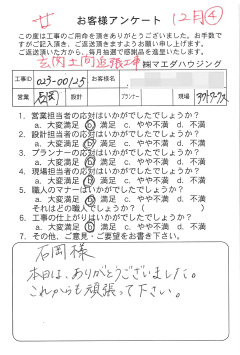 サ お客様アンケート 12月④
この度は工事のご用命を頂きありがとうございました。お手数で
すがご記入頂き、ご返送頂きますようお願い申し上げます。
ご返送頂いた方から、毎月抽選で感謝品を進呈いたします。
玄関土間延張工事 ㈱マエダハウジング
工事ID 023-00125 お客様名
営業 石岡 設計 プランナー 現場
1. 営業担当者の応対はいかがでしたでしょうか?
a. 大変満足 b. 満足 c. やや不満 d. 不満
2. 設計担当者の応対はいかがでしたでしょうか?
a. 大変満足 b. 満足 c. やや不満 d. 不満
3. プランナーの応対はいかがでしたでしょうか?
a. 大変満足 b. 満足 c. やや不満 d. 不満
4. 現場担当者の応対はいかがでしたでしょうか?
a. 大変満足 b. 満足 c. やや不満 d. 不満
5. 職人のマナーはいかがでしたでしょうか?
a. 大変満足 b. 満足 c. やや不満 d. 不満
それはどの職人でしょうか? ( )
6. 工事の仕上がりはいかがでしたでしょうか?
a. 大変満足 b. 満足 c. やや不満 d. 不満
7. その他、ご意見・ご要望をお書き下さい。
石岡様
本日は、ありがとうございました。
これからも頑張って下さい。